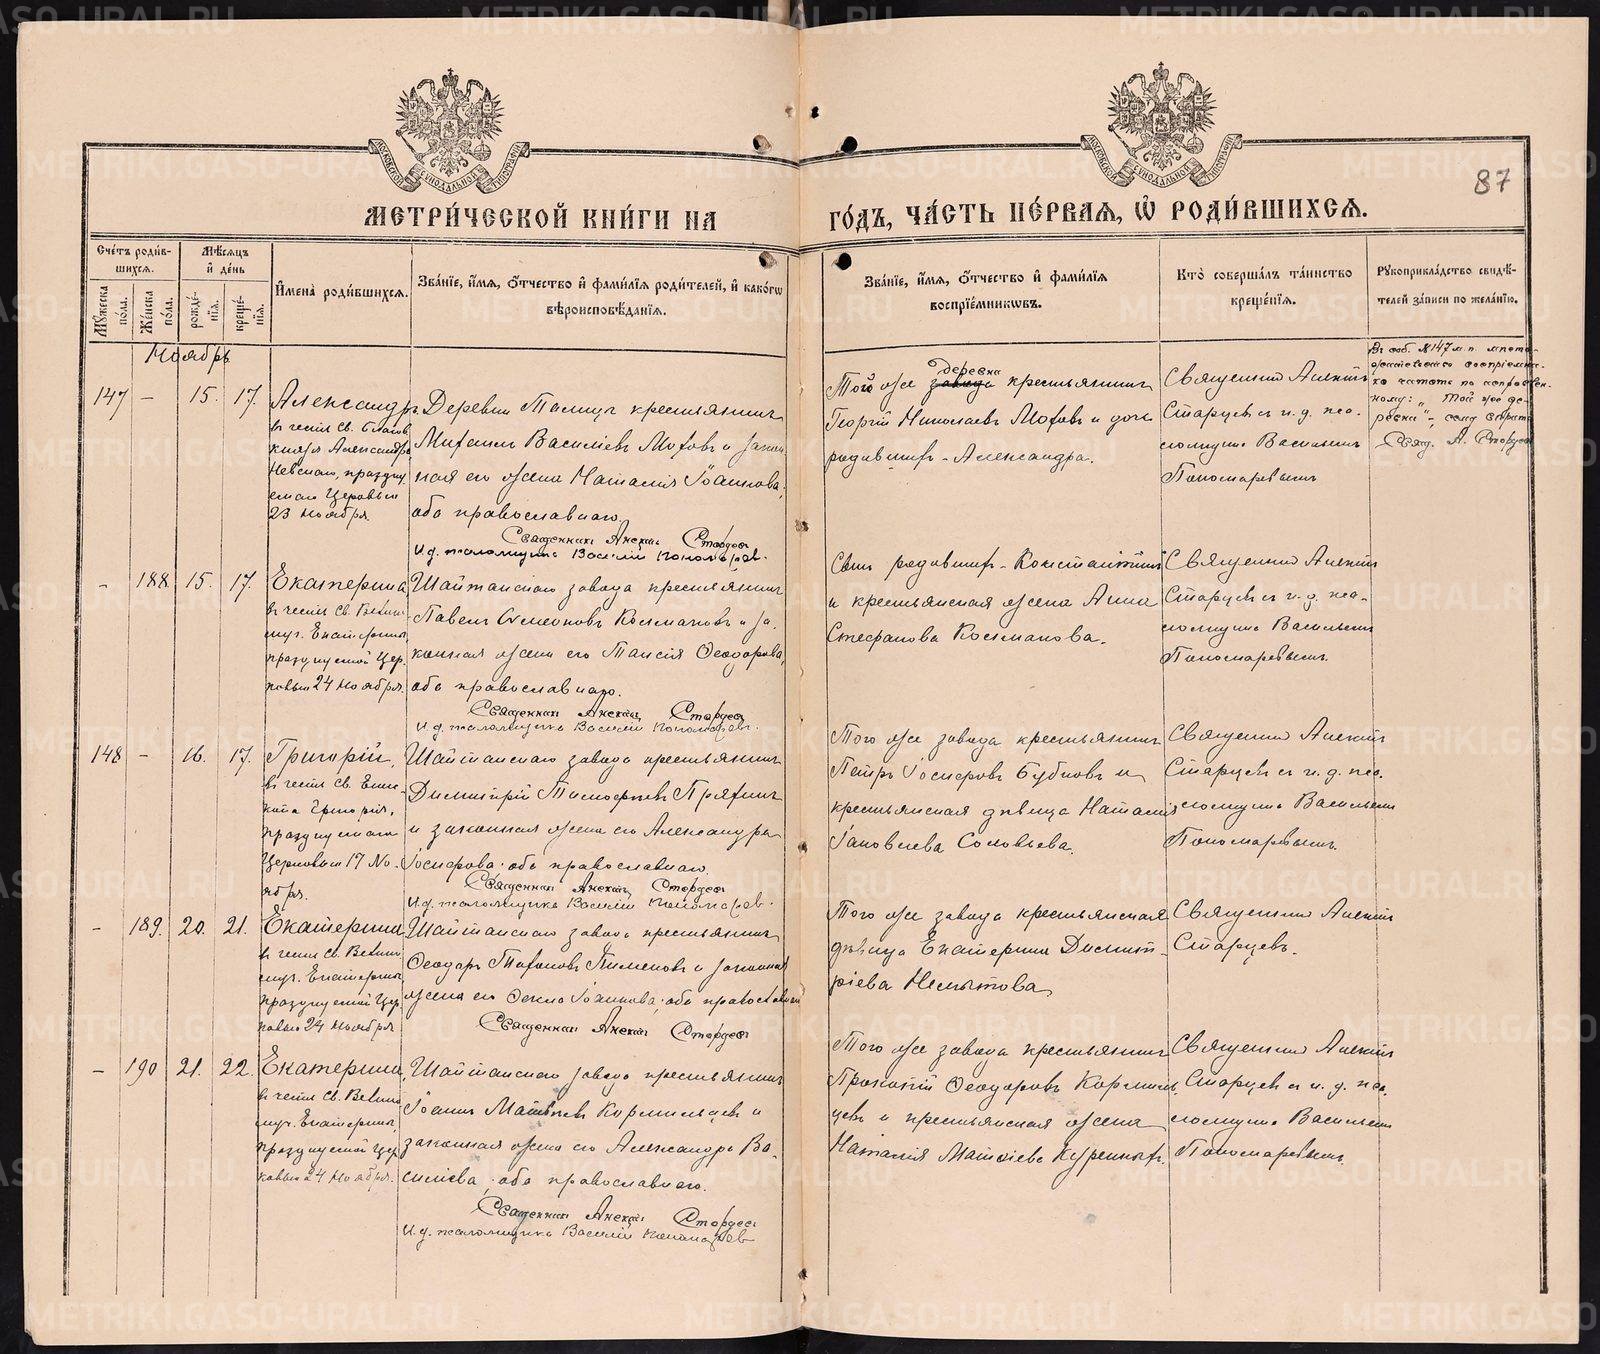 87
МЕТРИ́ЧЕСКОЙ КНИ́ГИ НА ГО́ДЪ, ЧА́СТЬ ПЕ́РВАЯ, Ѡ҆ РОДИ́ВШИХСЯ.
Сче́тъ роди́в-
шихся.
Мꙋ́жеска по́ла.
Же́нска по́ла.
Мѣ́сяцъ
и҆ де́нь
рожде́-
нїя.
креще́-
нїя.
И҆мена̀ роди́вшихся.
Зва́нїе, и҆́мя, ѻ҆́тчество и҆ фами́лїя роди́телей, и҆ како́гѡ
вѣроисповѣ́данїя.
Зва́нїе, и҆́мя, ѻ҆́тчество и҆ фами́лїя
воспрїе́мникѡвъ.
Кто̀ соверша́лъ та́инство
креще́нїя.
Рꙋкоприкла́дство свидѣ́-
телей за́писи по жела́нїю.
Ноябрь
147 – 15. 17.
Александръ
въ честь Св. Благов.
князя Александра
Невскаго, празднуемаго Церковью
23 Ноября.
Деревни Талицы крестьянинъ
Михаилъ Васильевъ Моховъ и закон-
ная его жена Наталія Іоаннова,
оба православнаго.
Священникъ Алексій Старцевъ
И. д. псаломщика Василій Пономаревъ.
Той же завода деревни крестьянинъ
Георгій Николаевъ Моховъ и дочь
родившихъ - Александра.
Священникъ Алексій
Старцевъ съ и. д. пса-
ломщика Василіемъ
Пономаревымъ
Въ ст. № 147 м. п.
по исправлен-
ному: "Той же де-
ревни",
Свящ. А. Старцевъ
– 188 15. 17.
Екатерина
въ честь Св. Велико-
муч. Екатерины,
празднуемой Цер-
ковью 24 Ноября.
Шайтанскаго завода крестьянинъ
Павелъ Симеоновъ Колмаковъ и за-
конная жена его Таисія Ѳеодорова,
оба православнаго.
Священникъ Алексій Старцевъ
И. д. псаломщика Василій Пономаревъ.
Сынъ родившихъ - Константинъ
и крестьянская жена Анна
Стефанова Колмакова.
Священникъ Алексій
Старцевъ съ и. д. пса-
ломщика Василіемъ
Пономаревымъ.
148 – 16. 17.
Григорій,
въ честь Св. Епис-
копа Григорія,
празднуемаго
Церковью 17 Но-
ября.
Шайтанскаго завода крестьянинъ
Димитрій Тимофеевъ Пряхинъ
и законная жена его Александра
Іосифова, оба православнаго.
Священникъ Алексій Старцевъ
И. д. псаломщика Василій Пономаревъ.
Того же завода крестьянинъ
Петръ Іосифовъ Бубновъ и
крестьянская дѣвица Наталія
Іаковлева Соловьева.
Священникъ Алексій
Старцевъ съ и. д. пса-
ломщика Василіемъ
Пономаревымъ.
– 189. 20. 21.
Екатерина
въ честь Св. Велико-
муч. Екатерины,
празднуемой Цер-
ковью 24 Ноября
Шайтанскаго завода крестьянинъ
Ѳеодоръ Пименовъ и законная
жена его Іоаннова, оба православнаго
Священникъ Алексій Старцевъ
Того же завода крестьянская
дѣвица Екатерина Димит-
ріева
Священникъ Алексій
Старцевъ.
– 190 21. 22.
Екатерина,
въ честь Св. Велико-
муч. Екатерины,
празднуемой Цер-
ковью 24 Ноября.
Шайтанскаго завода крестьянинъ
Іоаннъ Матвѣевъ Кормильцевъ и
законная жена его Александра Ва-
сильева, оба православнаго.
Священникъ Алексій Старцевъ
И. д. псаломщика Василій Пономаревъ
Того же завода крестьянинъ
Прокопій Ѳеодоровъ Кормиль-
цевъ и крестьянская жена
Наталія
Священникъ Алексій
Старцевъ съ и. д. пса-
ломщика Василіемъ
Пономаревымъ.
METRIKI.GASO-URAL.RU